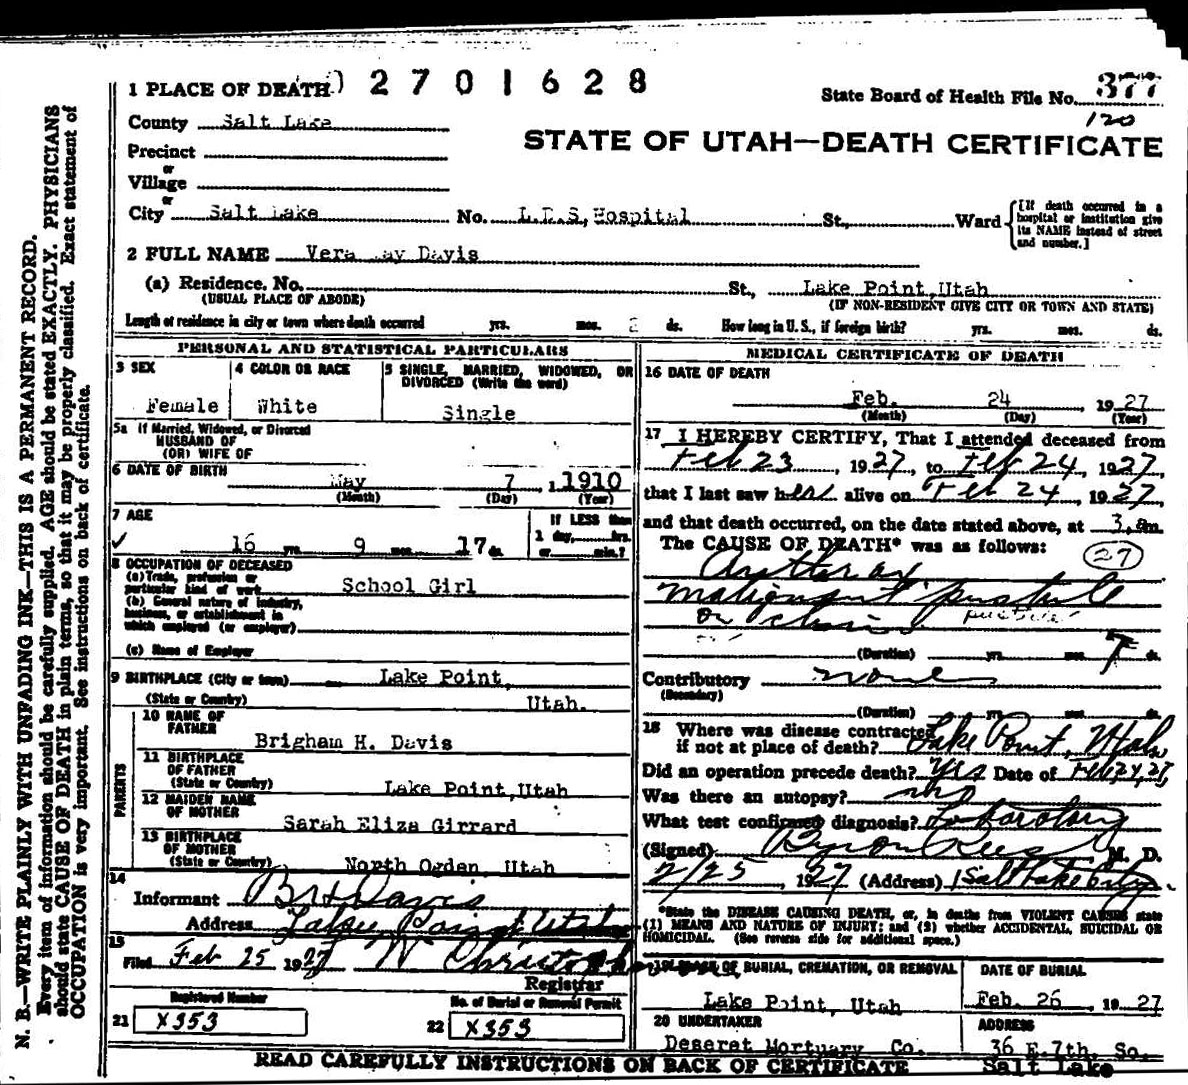 N. B.—WRITE PLAINLY WITH UNFADING INK—THIS IS A PERMANENT RECORD.
Every item of information should be carefully supplied. AGE should be stated EXACTLY. PHYSICIANS
should state CAUSE OF DEATH in plain terms, so that it may be properly classified. Exact statement of
OCCUPATION is very important. See instructions on back of certificate.
1 PLACE OF DEATH 2701628
State Board of Health File No. 377
120
County Salt Lake
STATE OF UTAH—DEATH CERTIFICATE
Precinct
or
Village
or
City Salt Lake No. L.D.S. Hospital St., Ward
[If death occurred in a
hospital or institution give
its NAME instead of street
and number.]
2 FULL NAME Vera May Davis
(a) Residence. No. St., Lake Point, Utah
(USUAL PLACE OF ABODE) (IF NON-RESIDENT GIVE CITY OR TOWN AND STATE)
Length of residence in city or town where death occurred yrs. mos. 2 ds. How long in U. S., if foreign birth? yrs. mos. ds.
PERSONAL AND STATISTICAL PARTICULARS
3 SEX
Female
4 COLOR OR RACE
White
5 SINGLE, MARRIED, WIDOWED, OR
DIVORCED (Write the word)
Single
5a If Married, Widowed, or Divorced
HUSBAND OF
(OR) WIFE OF
6 DATE OF BIRTH May 7, 1910
(Month) (Day) (Year)
7 AGE
16 yrs. 9 mos. 17 ds.
If LESS than
1 day, hrs.
or min.?
8 OCCUPATION OF DECEASED
(a) Trade, profession or
particular kind of work School Girl
(b) General nature of industry,
business, or establishment in
which employed (or employer)
(c) Name of Employer
9 BIRTHPLACE (City or town) Lake Point,
(State or Country) Utah.
PARENTS
10 NAME OF
FATHER
Brigham H. Davis
11 BIRTHPLACE
OF FATHER
(State or Country) Lake Point, Utah
12 MAIDEN NAME
OF MOTHER
Sarah Eliza Girrard
13 BIRTHPLACE
OF MOTHER
(State or Country) North Ogden, Utah
14
Informant B H Davis
Address Lake Point Utah
15
Filed Feb 25 1927 W Christopherson
Registrar
Registered Number
21 X353
No. of Burial or Removal Permit
22 X353
MEDICAL CERTIFICATE OF DEATH
16 DATE OF DEATH
Feb. 24 1927
(Month) (Day) (Year)
17 I HEREBY CERTIFY, That I attended deceased from
Feb 23, 1927, to Feb 24, 1927,
that I last saw her alive on Feb 24, 1927,
and that death occurred, on the date stated above, at 3 am
The CAUSE OF DEATH* was as follows:
27
Anthrax
malignant pustule
on pustule
(Duration) yrs. mos. 7 ds.
Contributory none
(Secondary)
(Duration) yrs. mos. ds.
18 Where was disease contracted
if not at place of death? Lake Point, Utah
Did an operation precede death? Yes Date of Feb 24, 27
Was there an autopsy? no
What test confirmed diagnosis? Laboratory
(Signed) Byron Rees M. D.
2/25, 1927 (Address) Salt Lake City
*State the DISEASE CAUSING DEATH, or, in deaths from VIOLENT CAUSES state
(1) MEANS AND NATURE OF INJURY; and (2) whether ACCIDENTAL, SUICIDAL OR
HOMICIDAL. (See reverse side for additional space.)
19 PLACE OF BURIAL, CREMATION, OR REMOVAL
Lake Point, Utah
DATE OF BURIAL
Feb. 26 1927
20 UNDERTAKER
Deseret Mortuary Co.
ADDRESS
36 E. 7th. So.
Salt Lake
READ CAREFULLY INSTRUCTIONS ON BACK OF CERTIFICATE